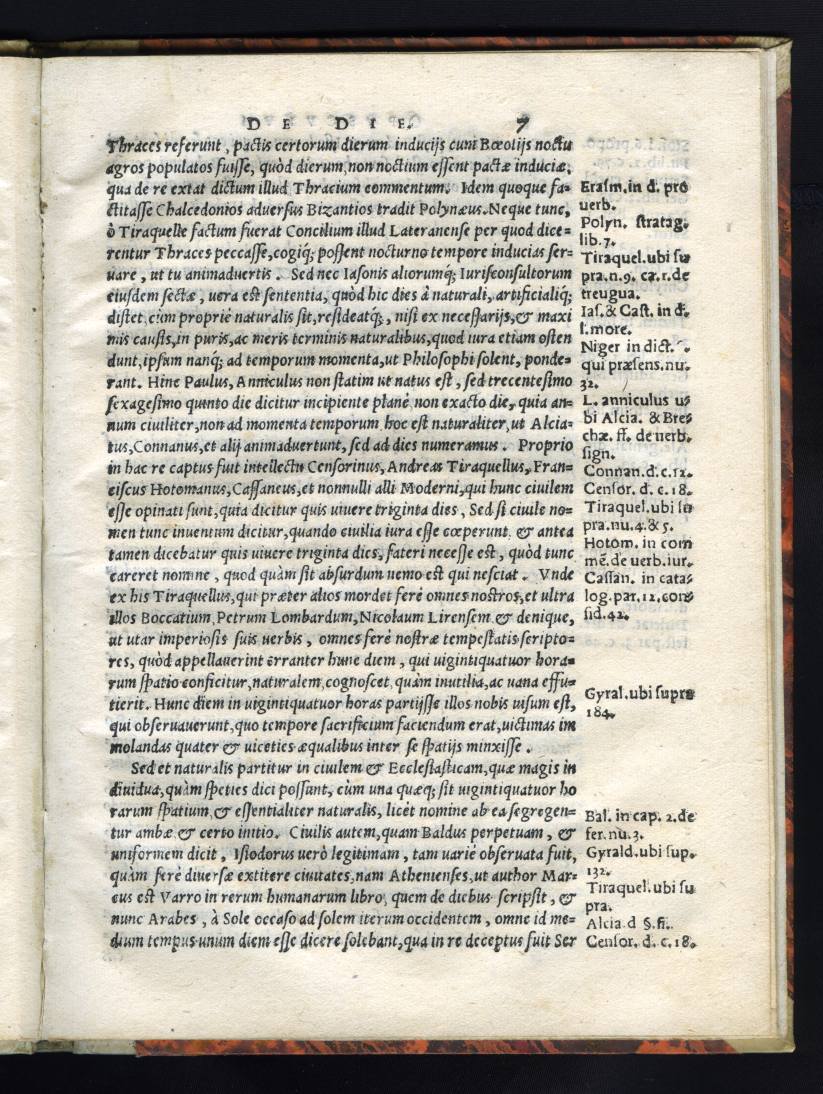 DE DIE. 7
Thraces referunt, pactis certorum dierum inducijs cum Bœotijs noctu
agros populatos fuisse, quòd dierum, non noctium essent pactæ induciæ,
qua de re extat dictum illud Thracium commentum. Idem quoque fa=
ctitasse Chalcedonios aduersus Bizantios tradit Polynæus. Neque tunc,
ò Tiraquelle factum fuerat Concilium illud Lateranense per quod dice=
rentur Thraces peccasse, cogiq́; possent nocturno tempore inducias ser=
uare, ut tu animaduertis. Sed nec Iasonis aliorumq́; Iurisconsultorum
eiusdem sectæ, uera est sententia, quòd hic dies à naturali, artificialiq́;
distet, cùm propriè naturalis sit, resideatq́;, nisi ex necessarijs, & maxi
mis causis, in puris, ac meris terminis naturalibus, quod iura etiam osten
dunt, ipsum nanq́; ad temporum momenta, ut Philosophi solent, ponde=
rant. Hinc Paulus, Anniculus non statim ut natus est, sed trecentesimo
sexagesimo quinto die dicitur incipiente planè non exacto die, quia an=
num ciuiliter, non ad momenta temporum hoc est naturaliter, ut Alcia=
tus, Connanus, et alij animaduertunt, sed ad dies numeramus. Proprio
in hac re captus fuit intellectu Censorinus, Andreas Tiraquellus, Fran=
ciscus Hotomanus, Cassaneus, et nonnulli alli Moderni, qui hunc ciuilem
esse opinati sunt, quia dicitur quis uiuere triginta dies, Sed si ciuile no=
men tunc inuentum dicitur, quando ciuilia iura esse cœperunt. & antea
tamen dicebatur quis uiuere triginta dies, fateri necesse est, quòd tunc
careret nomine, quod quàm sit absurdum nemo est qui nesciat. Vnde
ex his Tiraquellus, qui præter alios mordet ferè omnes nostros, et ultra
illos Boccatium, Petrum Lombardum, Nicolaum Lirensem & denique,
ut utar imperiosis suis uerbis, omnes ferè nostræ tempestatis scripto=
res, quòd appellauerint erranter hunc diem, qui uigintiquatuor hora=
rum spatio conficitur, naturalem, cognoscet, quàm inutilia, ac uana effu=
tierit. Hunc diem in uigintiquatuor horas partijsse illos nobis uisum est,
qui obseruauerunt, quo tempore sacrificium faciendum erat, uictimas im
molandas quater & uiceties æqualibus inter se spatijs minxisse.
Sed et naturalis partitur in ciuilem & Ecclesiasticam, quæ magis in
diuidua, quàm species dici possunt, cùm una quæq; sit uigintiquatuor ho
rarum spatium, & essentialiter naturalis, licèt nomine ab ea segregen=
tur ambæ, & certo initio. Ciuilis autem, quam Baldus perpetuam, &
uniformem dicit, Isiodorus uerò legitimam, tam uariè obseruata fuit,
quàm ferè diuersæ extitere ciuitates, nam Athenienses, ut author Mar=
cus est Varro in rerum humanarum libro, quem de diebus scripsit, &
nunc Arabes, à Sole occaso ad solem iterum occidentem, omne id me=
dium tempus unum diem esse dicere solebant, qua in re deceptus fuit Ser
Erasm. in d. pro
uerb.
Polyn. stratag.
lib. 7.
Tiraquel. ubi su
pra. n. 9. ca. 1. de
treugua.
Ias. & Cast. in d.
l. more.
Niger in dict.
qui præsens. nu.
32.
L. anniculus u=
bi Alcia. & Bres
chæ. ff. de uerb.
sign.
Connan. d. c. 12.
Censor. d. c. 18.
Tiraquel. ubi su
pra. nu. 4. & 5.
Hotom. in com
mẽ. de uerb. iur.
Cassan. in cata=
log. par. 12. con=
sid. 42.
Gyral. ubi supra
184.
Bal. in cap. 2. de
fer. nu. 3.
Gyrald. ubi sup.
132.
Tiraquel. ubi su
pra.
Alcia. d §. fi.
Censor. d. c. 18.